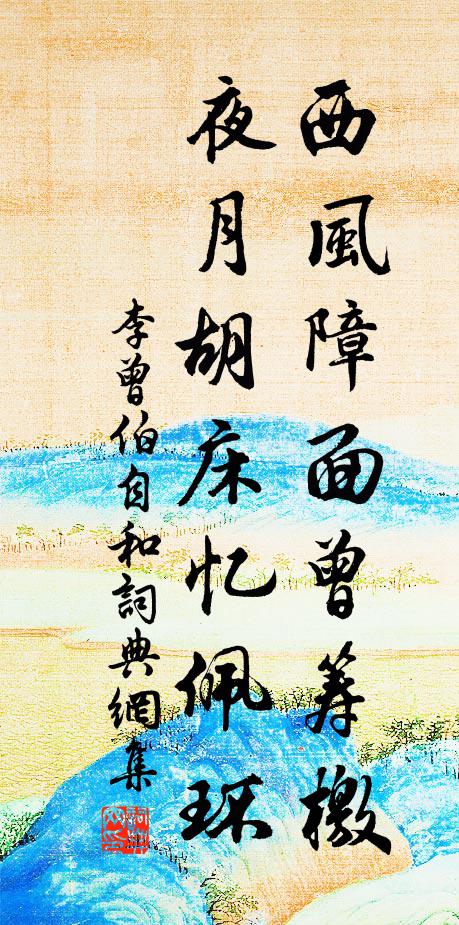 西風障面曾筹檄
夜月胡床忆佩环
李曾伯自和詞典網集